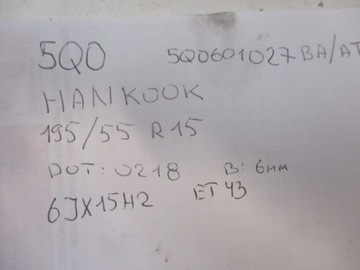 5Q0 5Q0601027BA/AT
HANKOOK
195/55 R15
DOT: 0218 B: 6mm
6JX15H2 ET 43